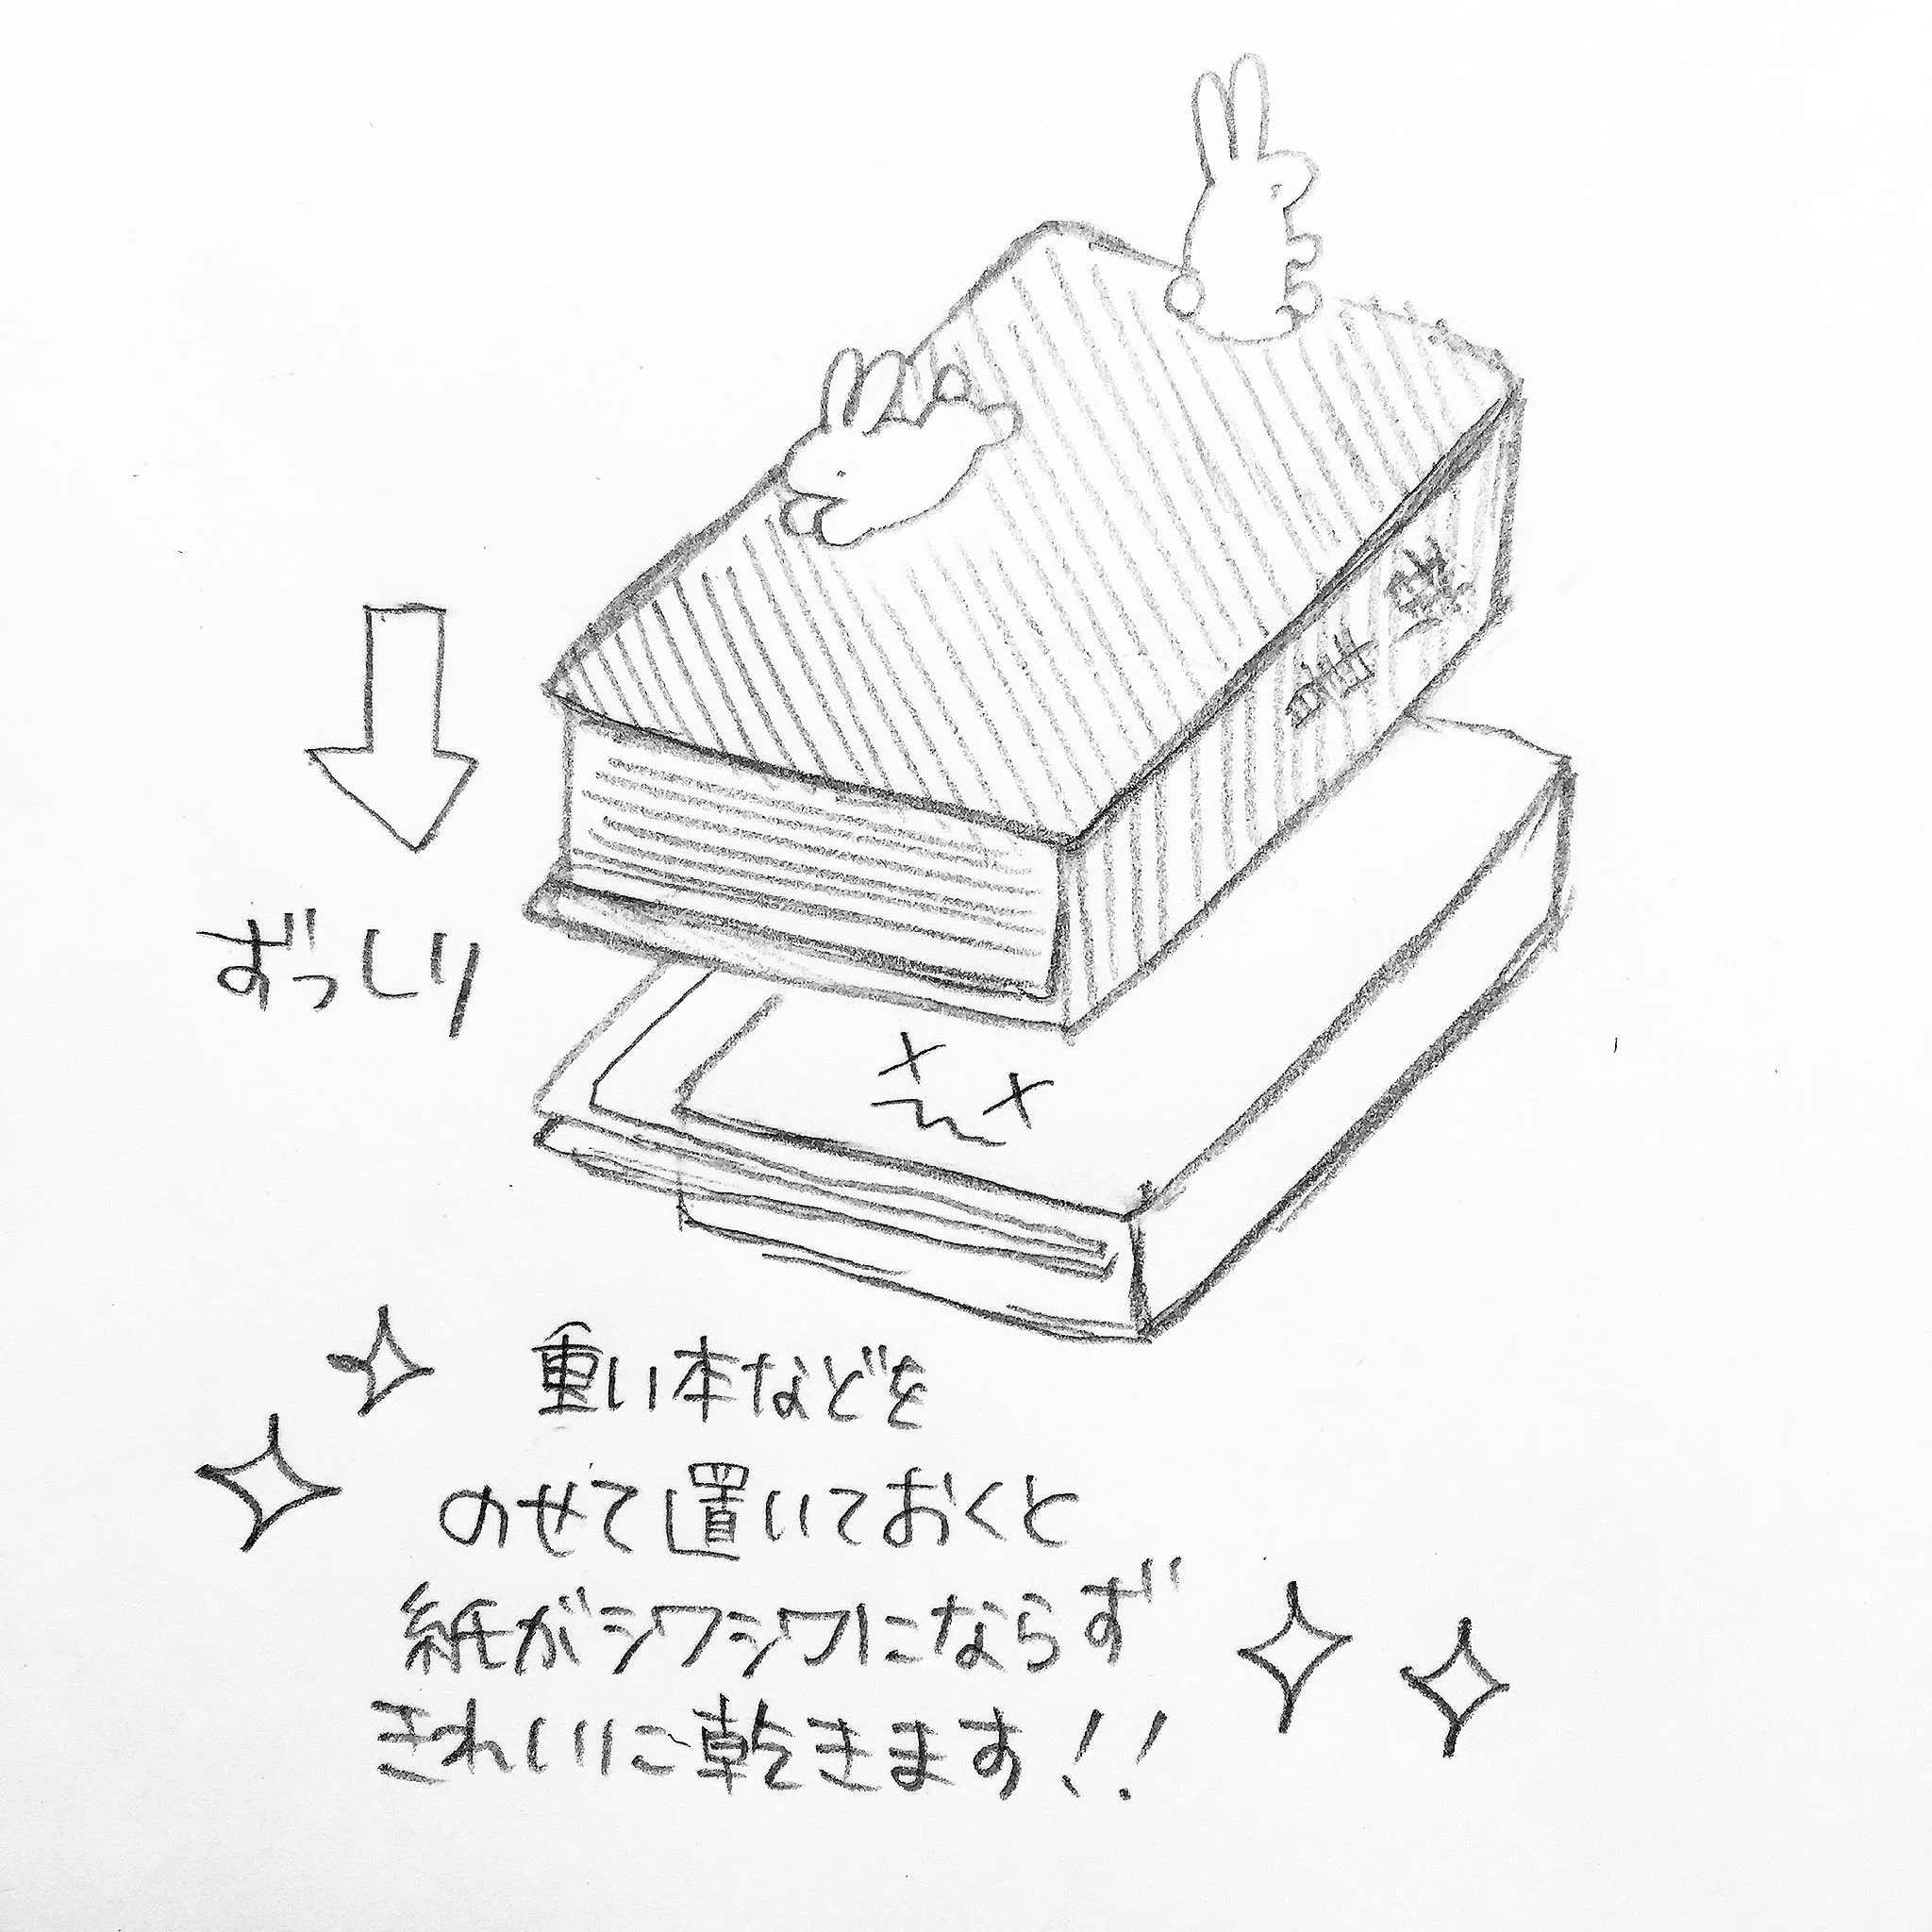 ずっしり
重い本などを
のせて置いておくと
紙がシワシワにならず
きれいに乾きます!!